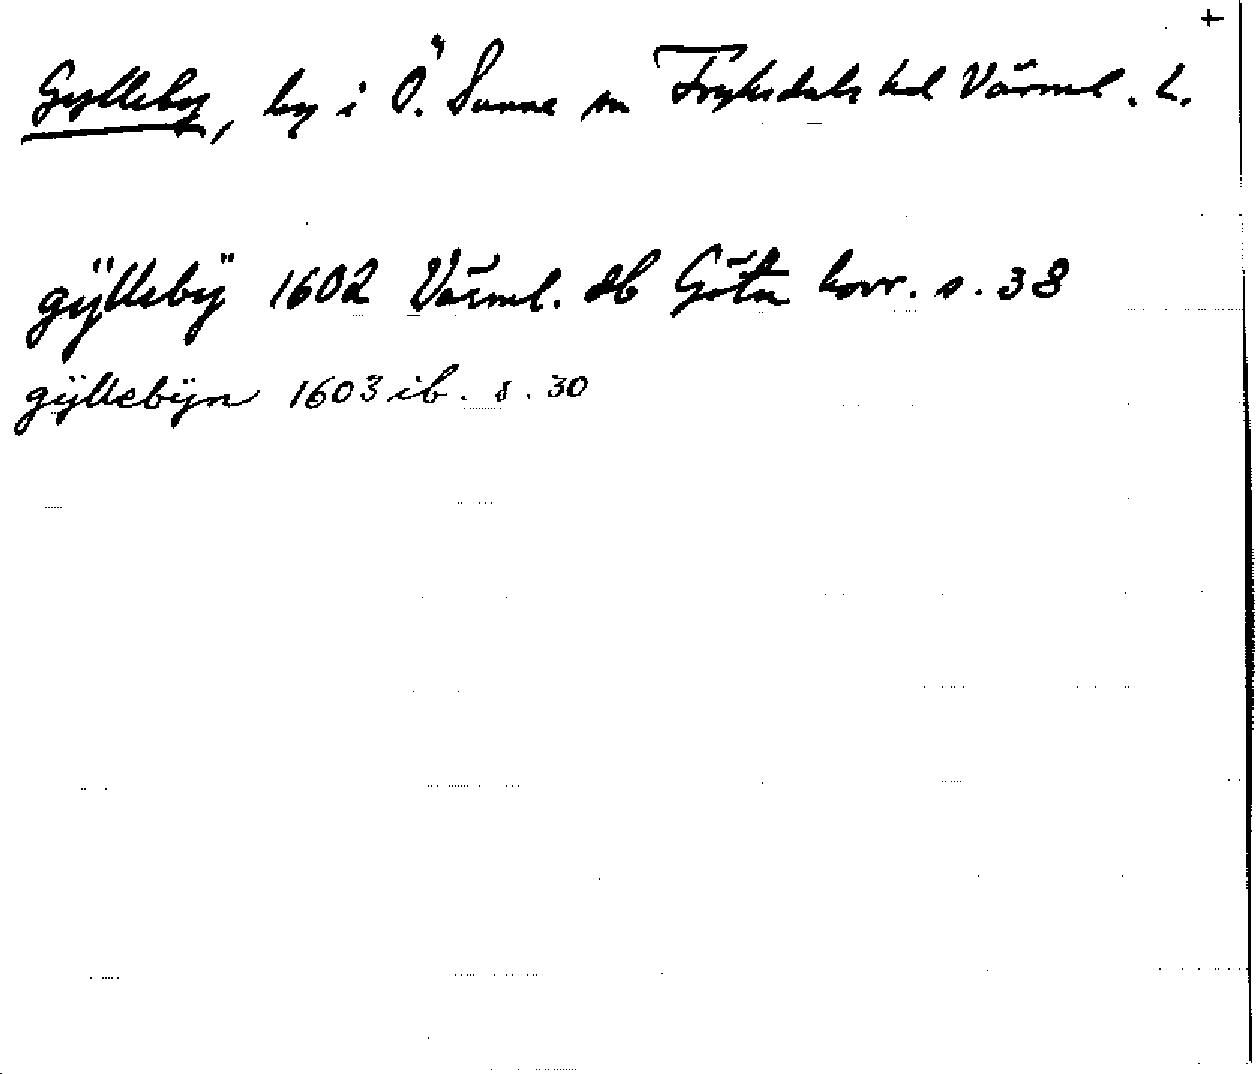 +
Gylleby, by i Ö. Sunne sn Fryksdals hd Värml. l.
gÿllebÿ 1602 Värml. db Göta hovr. s. 38
gÿllebÿn 1603 ib. s. 30